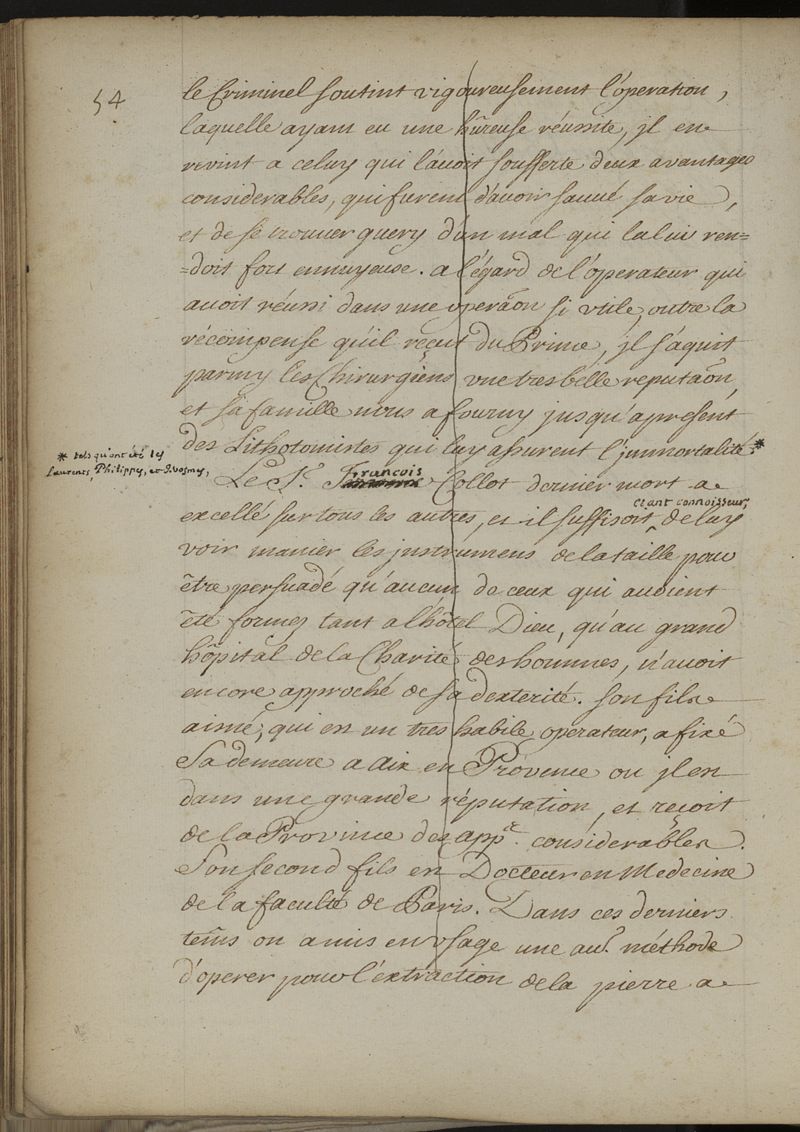 54
le Criminel soutint vigoureusement l'operation,
laquelle ayant eu une hûreuse réussite, jl en
revint a celuy qui l'auoit soufferte deux avantages
considerables, qui furent d'auoir sauué sa vie,
et de se trouuer guery d'un mal qui la lui ren=
=doit fort ennuyeuse. a l'égard de l'operateur qui
auoit réussi dans une operaõn si utile, outre la
récompense qu'il reçut du Prince, jl s'aquit
parmy les Chirurgiens une tres belle reputaõn,
et sa famille nous a fourny jusqu'apresent
des Lithotomistes qui luy assurent l'jmmortalité.*
* tels qu'ont été les
Laurents, Philippes, et
Le Sr. François Collot dernier mort a
excellé sur tous les autres, et il suffisoit, etant connoisseur, de luy
voir manier les jnstrumens de la taille pour
être persuadé qu'aucun de ceux qui auoient
été formez tant a l'hôtel Dieu, qu'au grand
hôpital de la Charité des hommes, n'auoit
encore approché de sa dexterité. son fils
aimé, qui en un tres habile operateur, a fixé
Sa demeure a Aix en Provence ou jl en
dans une grande réputation, et reçoit
de la Province des appt. considerables.
Son second fils en Docteur en Medecine
de la faculté de Paris. Dans ces derniers
tems on a mis en usage une aue. méthode
d'operer pour l'éxtraction de la pierre a